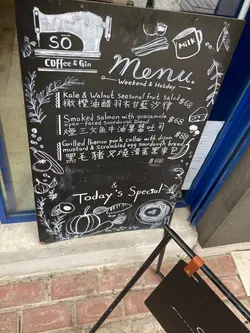 SŌ
COFFEE & Gin
MILK
Menu.
Weekend & Holiday
Kale & Walnut seasonal fruit salad
橄欖油醋羽衣甘藍沙律 $68
Smoked salmon with guacamole
open-faced sourdough bread
煙三文魚牛油果醬吐司 $68
Grilled Iberico pork collar with dijon
mustard & scrambled egg sourdough bread
黑毛豬叉燒滑蛋軍包
$88
&
Today's Special